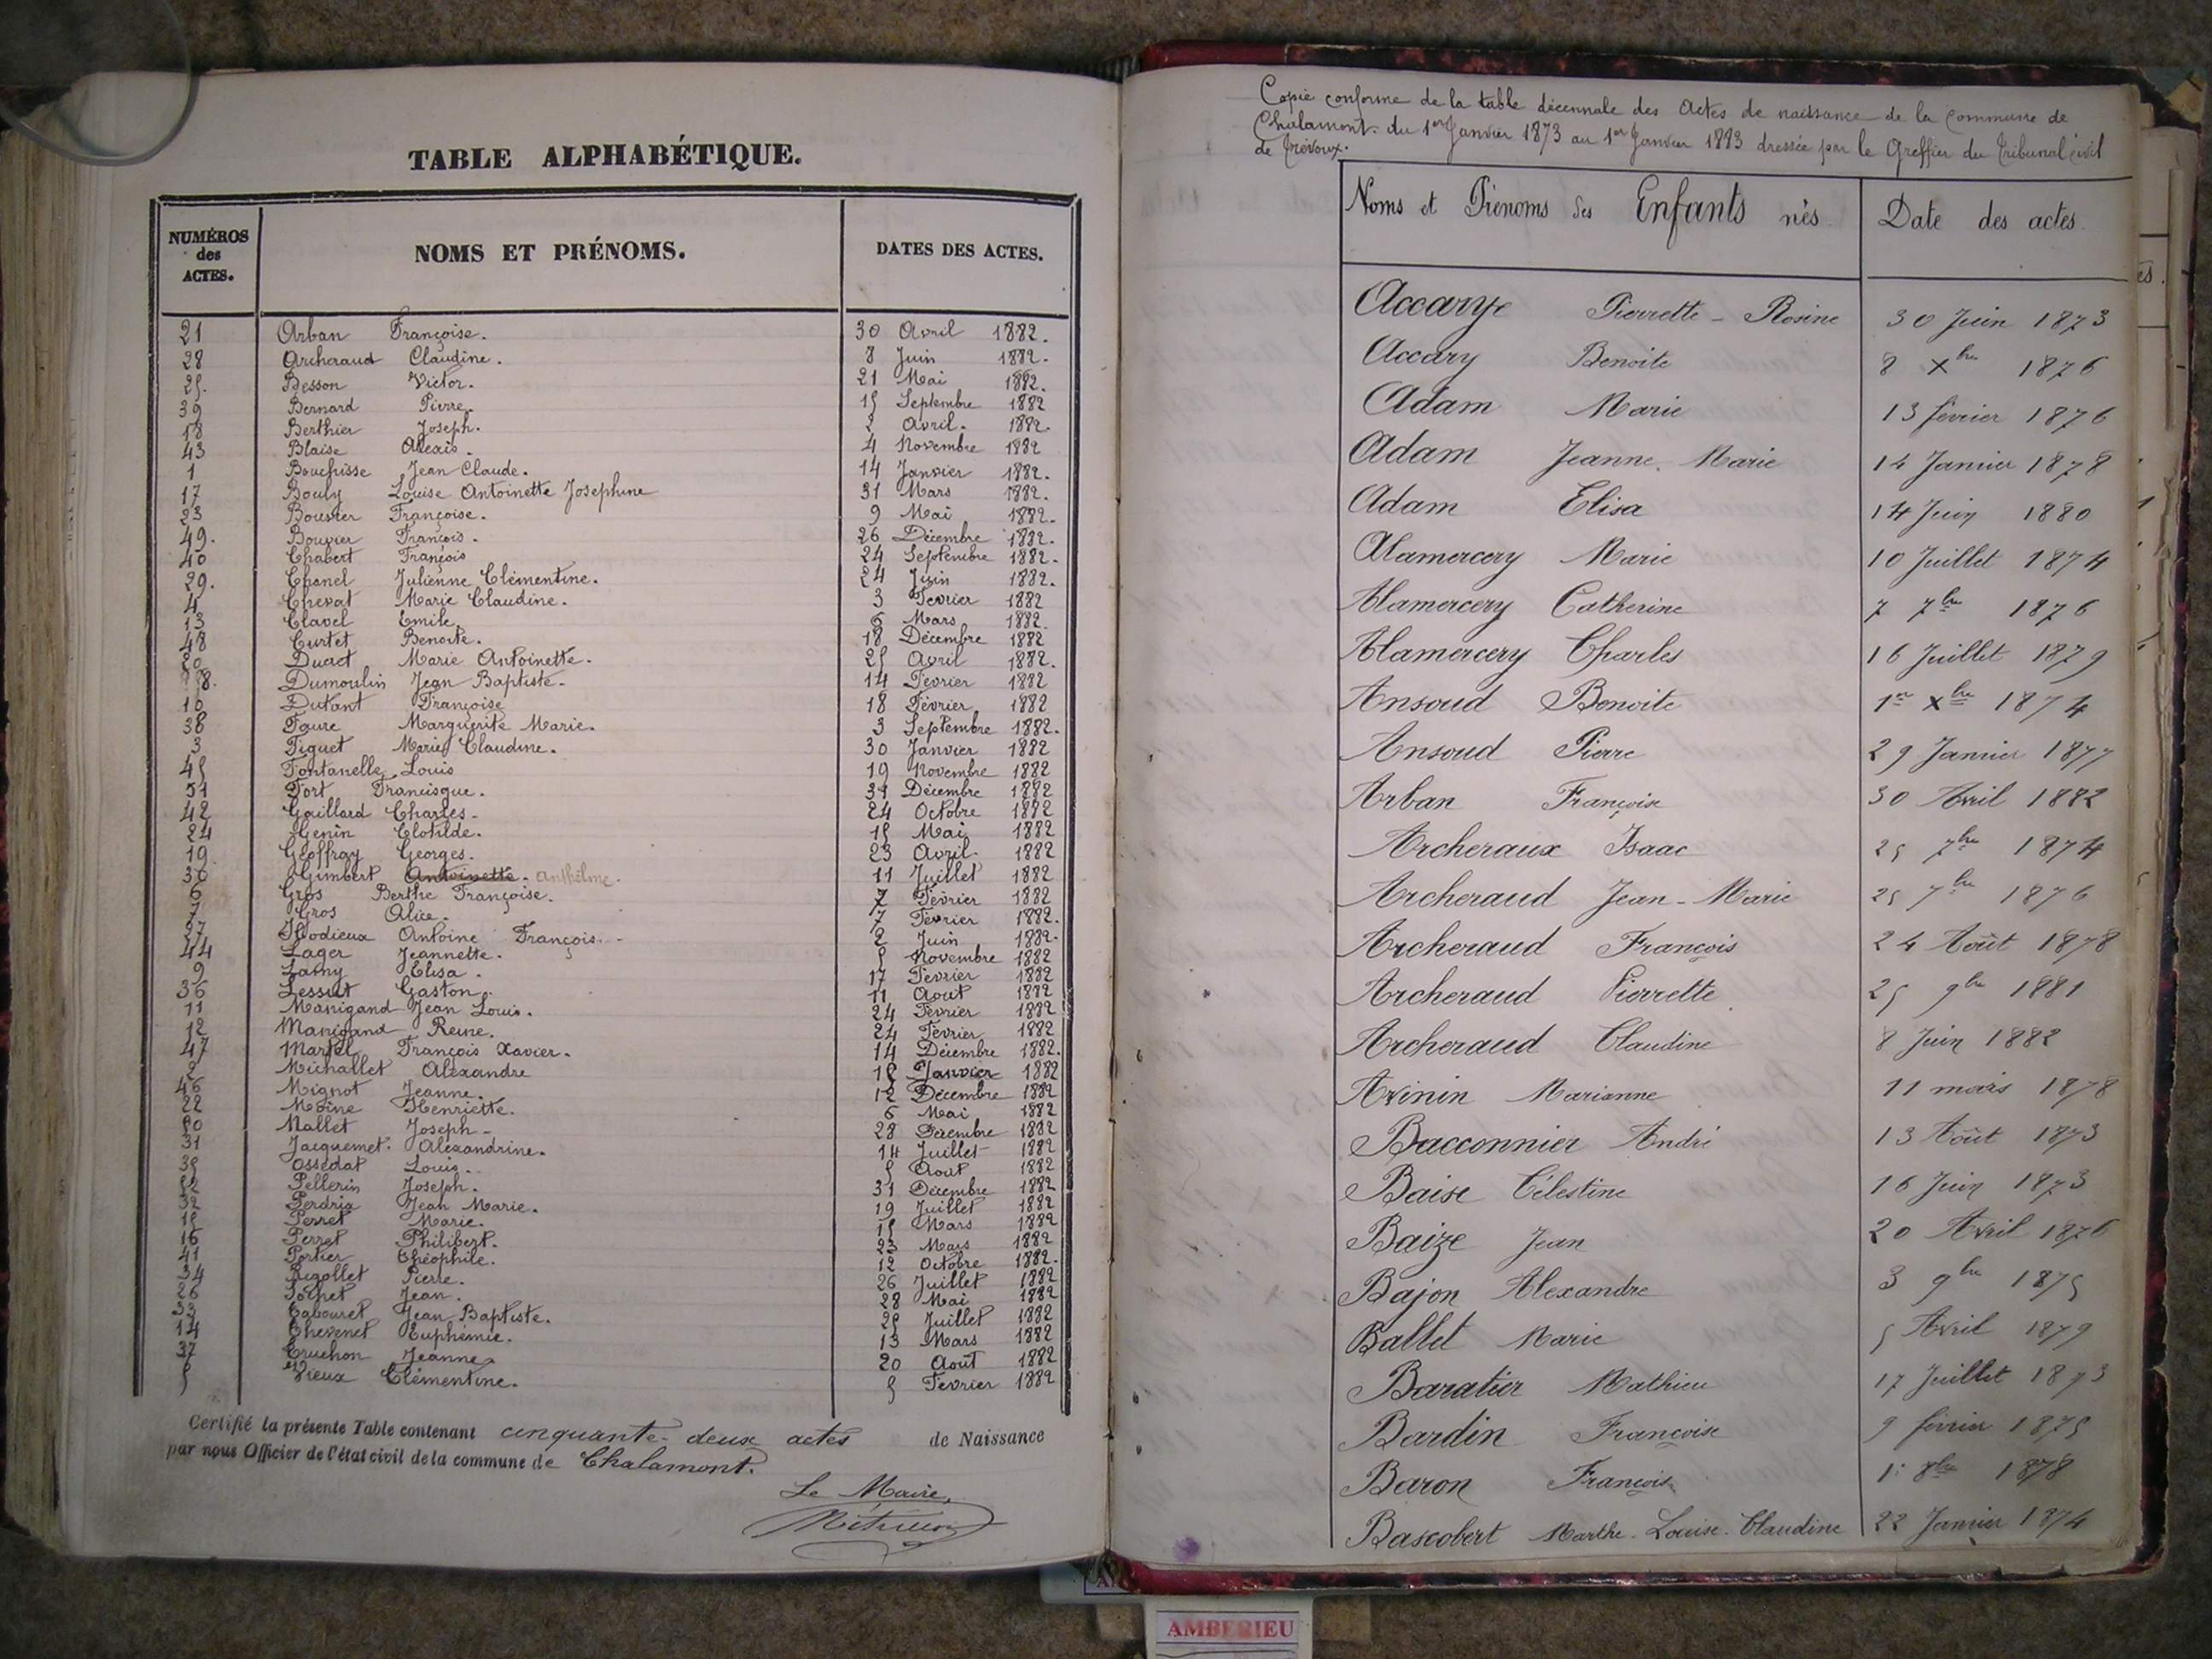 TABLE ALPHABÉTIQUE.
NUMÉROS des ACTES. NOMS ET PRÉNOMS. DATES DES ACTES.
21 Arban Françoise. 30 Avril 1882.
28 Archeraud Claudine. 8 Juin 1882.
25. Besson Victor. 21 Mai 1882.
39 Bernard Pierre. 15 Septembre 1882
18 Berthier Joseph. 2 Avril. 1882.
43 Blaise Alexis. 4 Novembre 1882
1 Bouchisse Jean Claude. 14 Janvier 1882.
17 Bouly Louise Antoinette Josephine 31 Mars 1882.
23 Bouvier Françoise. 9 Mai 1882.
49. Bouvier François. 26 Décembre 1882.
40 Chabert François 24 Septembre 1882.
29. Chanel Julienne Clémentine. 24 Juin 1882.
4 Chevat Marie Claudine. 3 Fevrier 1882
13 Clavel Emile 6 Mars 1882.
48 Curtet Benoite. 18 Décembre 1882
20 Ducret Marie Antoinette. 25 Avril 1882.
8. Dumoulin Jean Baptiste. 14 Fevrier 1882
10 Dutant Françoise 18 Février 1882
38 Faure Marguerite Marie. 3 Septembre 1882.
3 Figuet Marie Claudine. 30 Janvier 1882
45 Fontanelle Louis 19 Novembre 1882
51 Fort Francisque. 31 Décembre 1882
42 Gaillard Charles. 24 Octobre 1882
24 Genin Clotilde. 15 Mai 1882
19. Geoffray Georges. 23 Avril. 1882
30 Gimbert Antoinette. Anthelme. 11 Juillet 1882
6 Gros Berthe Françoise. 7 Février 1882
7 Gros Alice. 7 Fevrier 1882.
27 Hodieux Antoine François. 2 Juin 1882.
44 Lager Jeannette. 5 Novembre 1882
9 Lamy Elisa. 17 Fevrier 1882
36 Gaston. 11 Aout 1882
11 Manigand Jean Louis. 24 Fevrier 1882
12 Manigand Reine. 24 Février 1882
47 Martel François Xavier. 14 Décembre 1882.
2 Michallet Alexandre 18 Janvier 1882
46 Mignot Jeanne. 12 Décembre 1882
22 Moine Henriette. 6 Mai 1882
50 Mallet Joseph. 28 Décembre 1882
31 Jacquemet. Alexandrine. 14 Juillet 1882
35 Ossedat Louis. 5 Aout 1882
52 Pellerin Joseph. 31 Décembre 1882
32 Perdrix Jean Marie. 19 Juillet 1882
15 Perret Marie. 15 Mars 1882
16 Perret Philibert. 23 Mars 1882
41 Portier Théophile. 12 Octobre 1882.
34 Rigollet Pierre. 26 Juillet 1882
26 Jean. 28 Mai 1882
33 Tabouret Jean Baptiste. 25 Juillet 1882
14 Thevenet Euphémie. 13 Mars 1882
37 Truchon Jeanne. 20 Août 1882
5 Vieux Clémentine. 5 Fevrier 1882
Certifié la présente Table contenant cinquante-deux actes de Naissance
par nous Officier de l'état civil de la commune de Chalamont.
Le Maire,
Copie conforme de la table décennale des Actes de naissance de la commune de
Chalamont. du 1er Janvier 1873 au 1er Janvier 1883 dressée par le Greffier du Tribunal civil
de Trévoux.
Noms et Prénoms des Enfants nés Date des actes.
Accarye Pierrette - Rosine 30 Juin 1873
Accary Benoite 8 Xbre 1876
Adam Marie 13 février 1876
Adam Jeanne. Marie 14 Janvier 1878
Adam Elisa 14 Juin 1880
Alamercery Marie 10 Juillet 1874
Alamercery Catherine 7 7bre 1876
Alamercery Charles 16 Juillet 1879
Ansoud Benoite 1er Xbre 1874
Ansoud Pierre 29 Janvier 1877
Arban Françoise 30 Avril 1882
Archeraux Isaac 25 7bre 1874
Archeraud Jean - Marie 25 7bre 1876
Archeraud François 24 Août 1878
Archeraud Pierrette 25 9bre 1881
Archeraud Claudine 8 Juin 1882
Avinin Marianne 11 mars 1878
Bacconnier André 13 Août 1873
Baise Célestine 16 Juin 1873
Baize Jean 20 Avril 1876
Bajon Alexandre 3 9bre 1875
Ballet Marie 5 Avril 1879
Baratier Mathieu 17 Juillet 1873
Bardin Françoise 9 février 1875
Baron François 1r 8bre 1878
Bascobert Marthe. Louise. Claudine 22 Janvier 1874
AMBERIEU